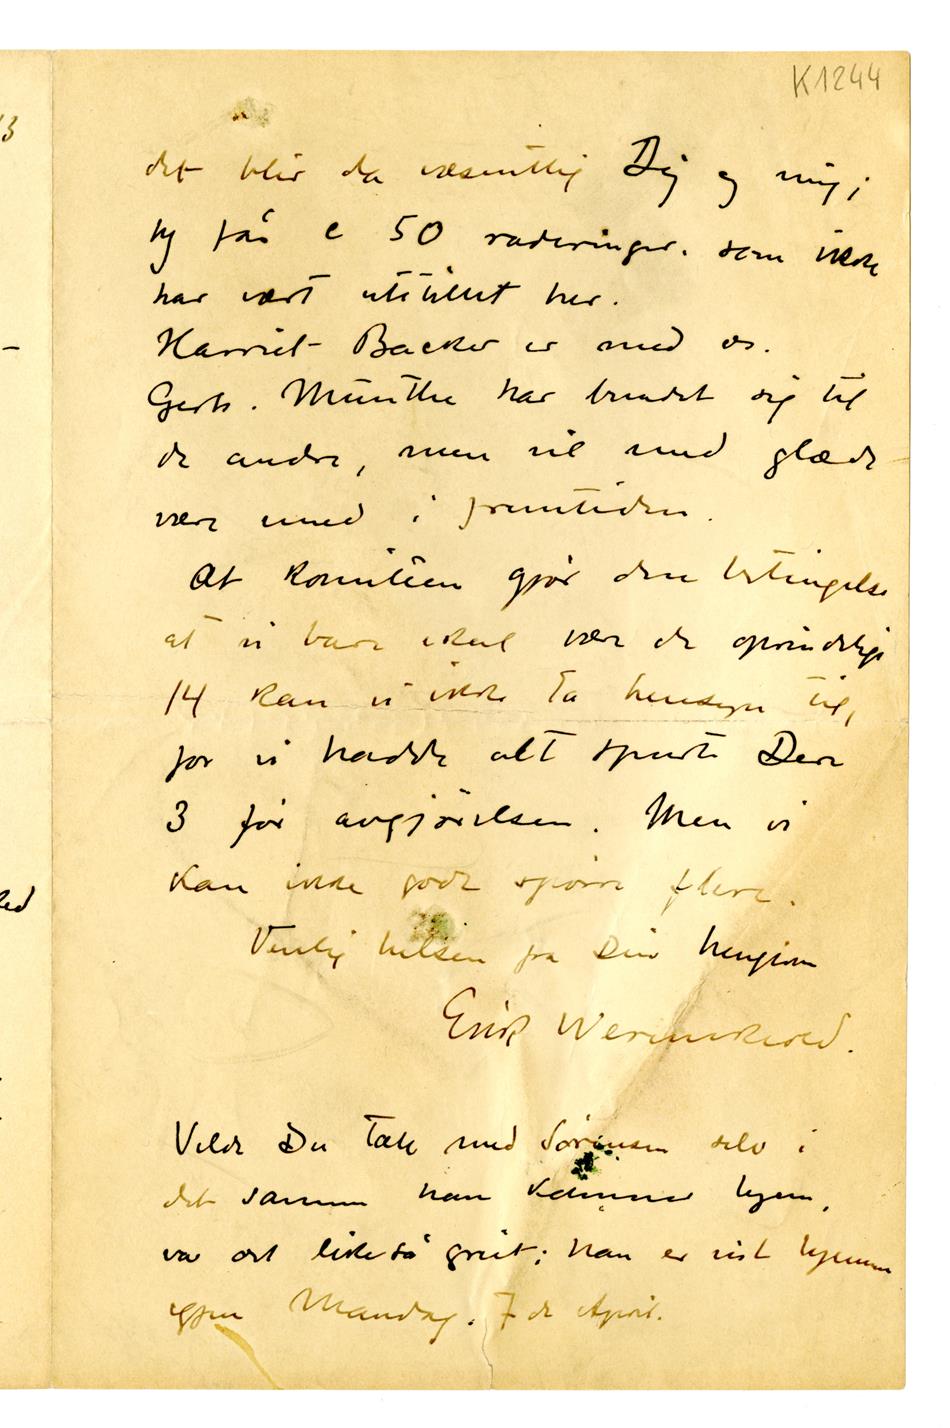 K1244
det blir da væsentlig Dig og mig;
jeg får c 50 raderinger. som ikke
har vært utstillet her.
Harriet Backer er med os.
Gerh. Munthe har bundet sig til
de andre, men vil med glæde
være med i fremtiden.
At komiteen gjør den betingelse
at vi bare skal være de oprindelige
14 kan vi ikke ta hensyn til,
for vi hadde alt spurt Dere
3 før avgjørelsen. Men vi
kan ikke godt spørre flere.
Venlig hilsen fra Din hengivne
Erik Werenskiold.
Vilde Du tale med Sørensen selv i
det samme han kommer hjem,
var det likeså greit; han er vist hjemme
igjen Mandag. 7de April.